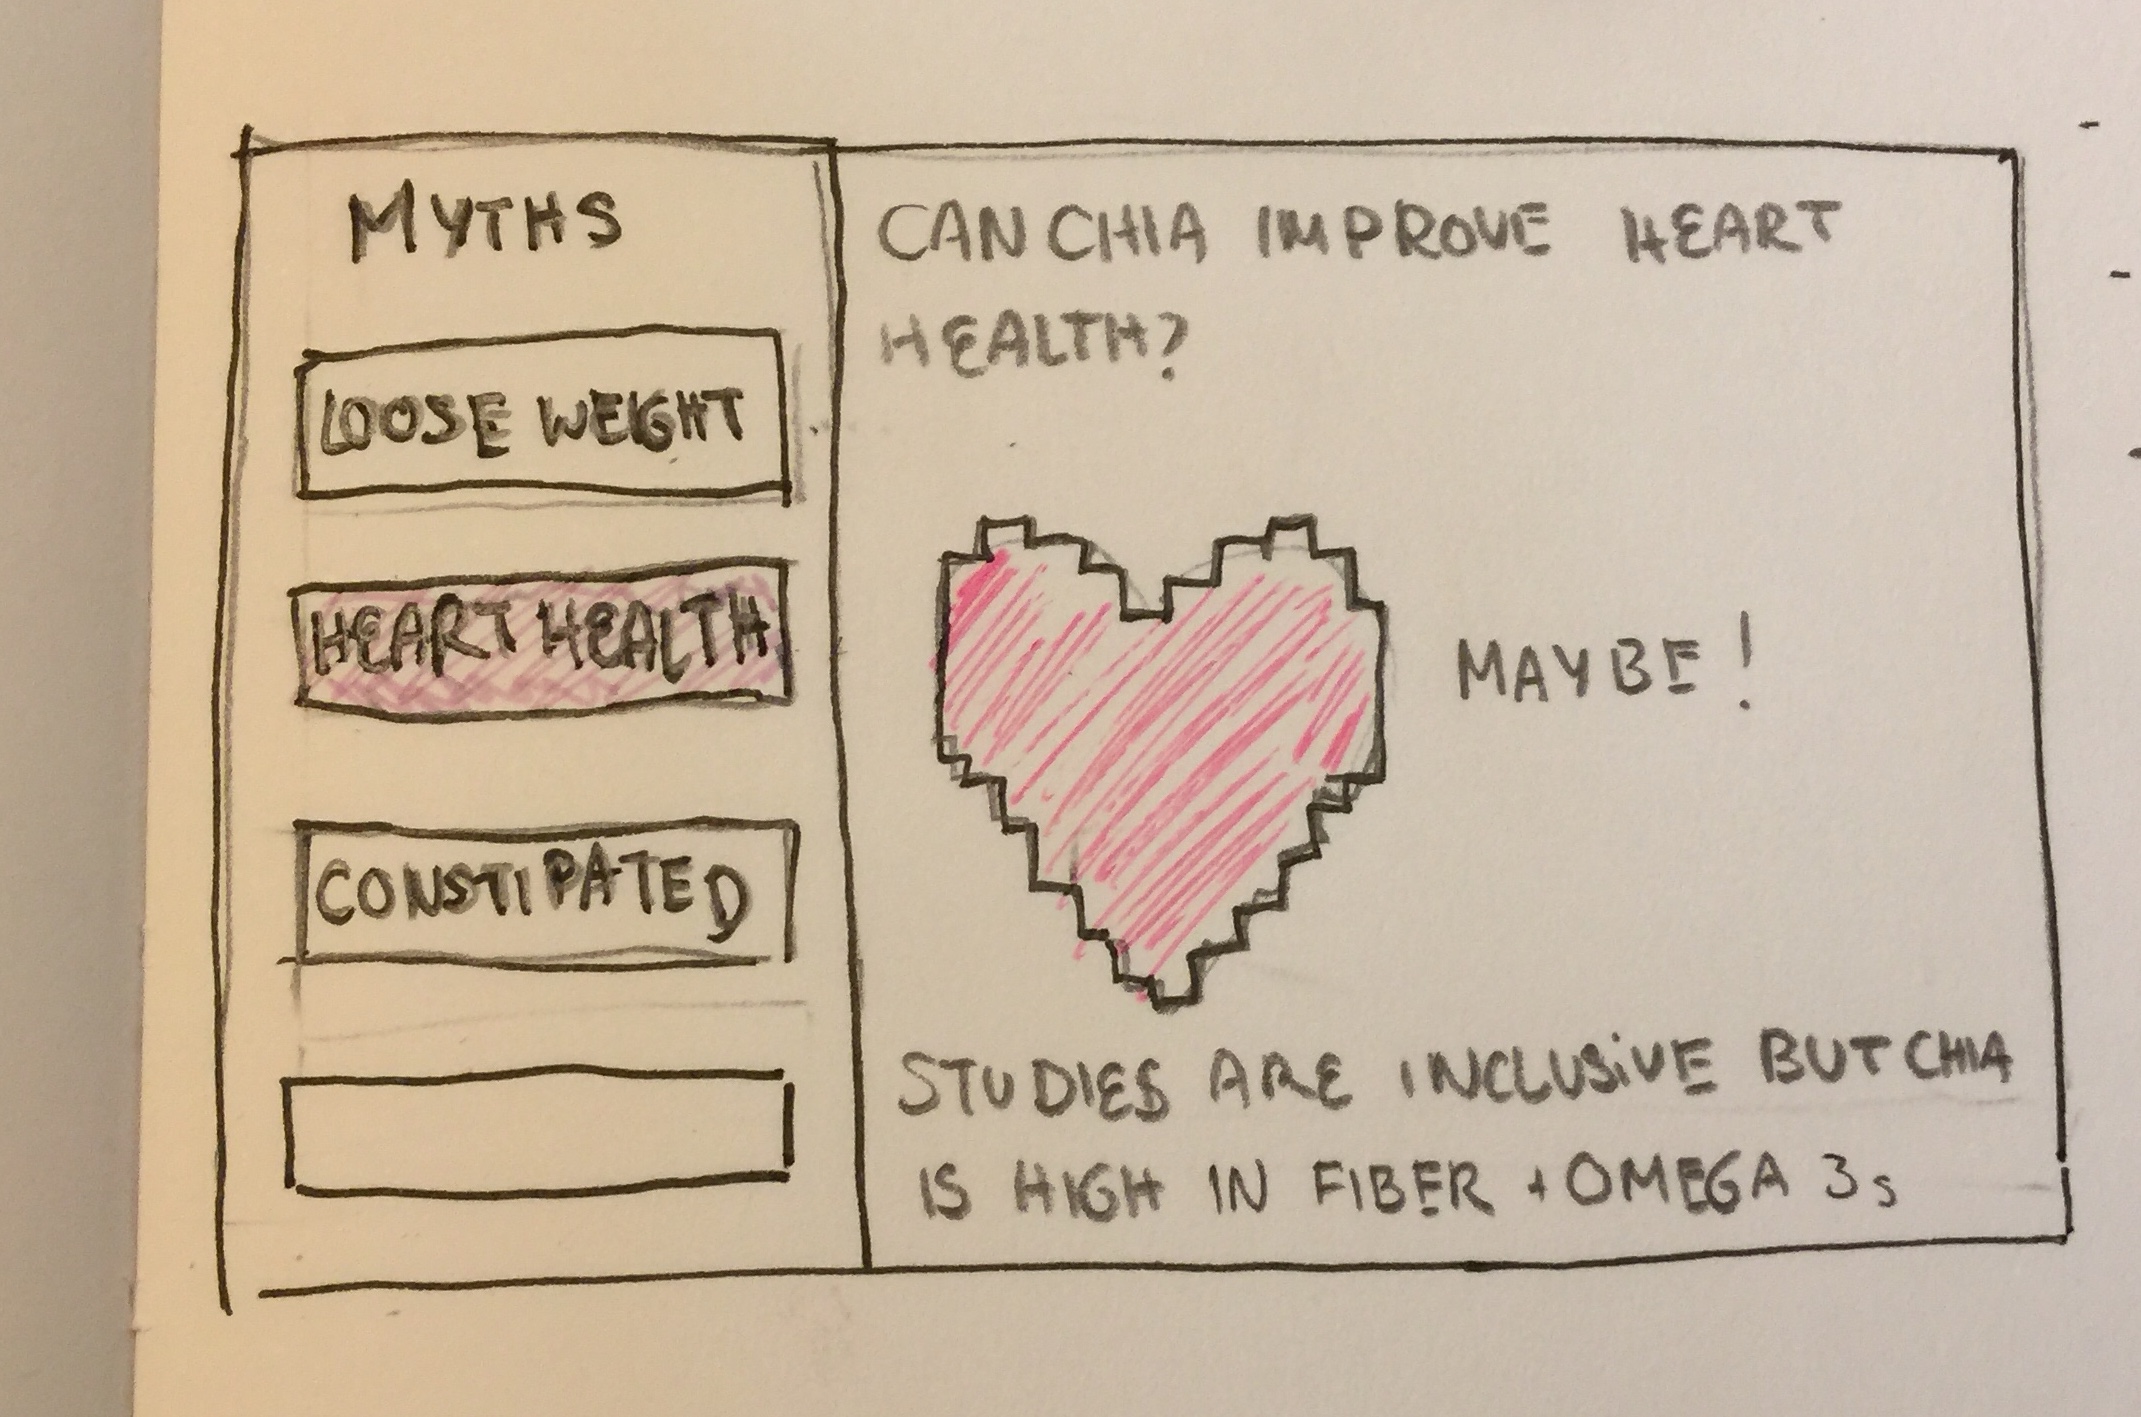 MYTHS
LOOSE WEIGHT
HEART HEALTH
CONSTIPATED
CAN CHIA IMPROVE HEART
HEALTH?
MAYBE!
STUDIES ARE INCLUSIVE BUT CHIA
IS HIGH IN FIBER + OMEGA 3s